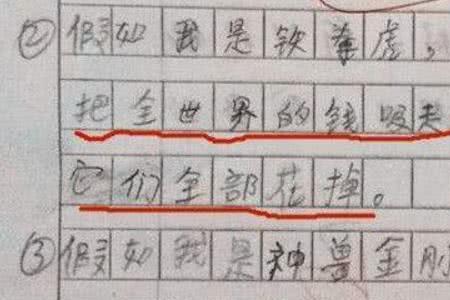 ②假如我是铁拳虎，
把全世界的钱吸
它们全部花掉。
③假如我是神兽金刚